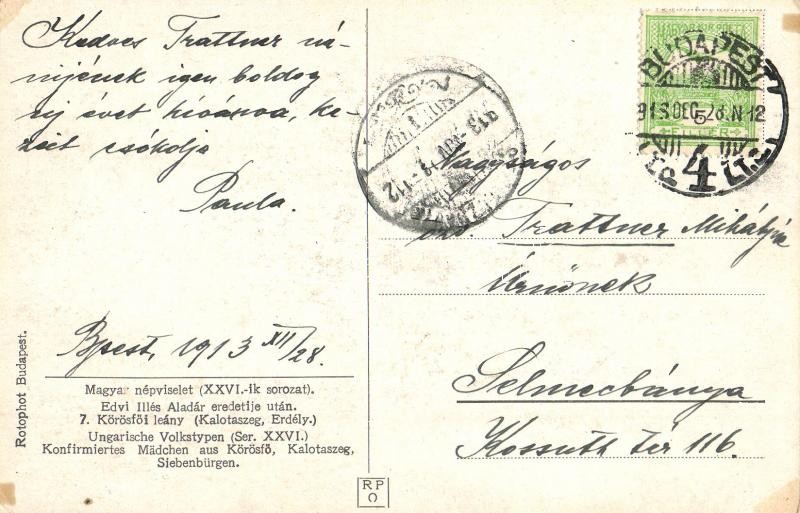 Kedves Trattner né-
nijének igen boldog
uj évet kívánva, ke-
zeit csókolja
Paula.
Bpest, 1913 XII/28.
Magyar népviselet (XXVI.-ik sorozat).
Edvi Illés Aladár eredetije után.
7. Körösfői leány (Kalotaszeg, Erdély.)
Ungarische Volkstypen (Ser. XXVI.)
Konfirmiertes Mädchen aus Körösfő, Kalotaszeg,
Siebenbürgen.
Rotophot Budapest.
RP
BUDAPEST
913 DEC. 28. N 12
4
5
FILLÉR
Nagyságos
özv. Trattner Mihályné
Úrnőnek
Selmecbánya
Kossuth tér 116.